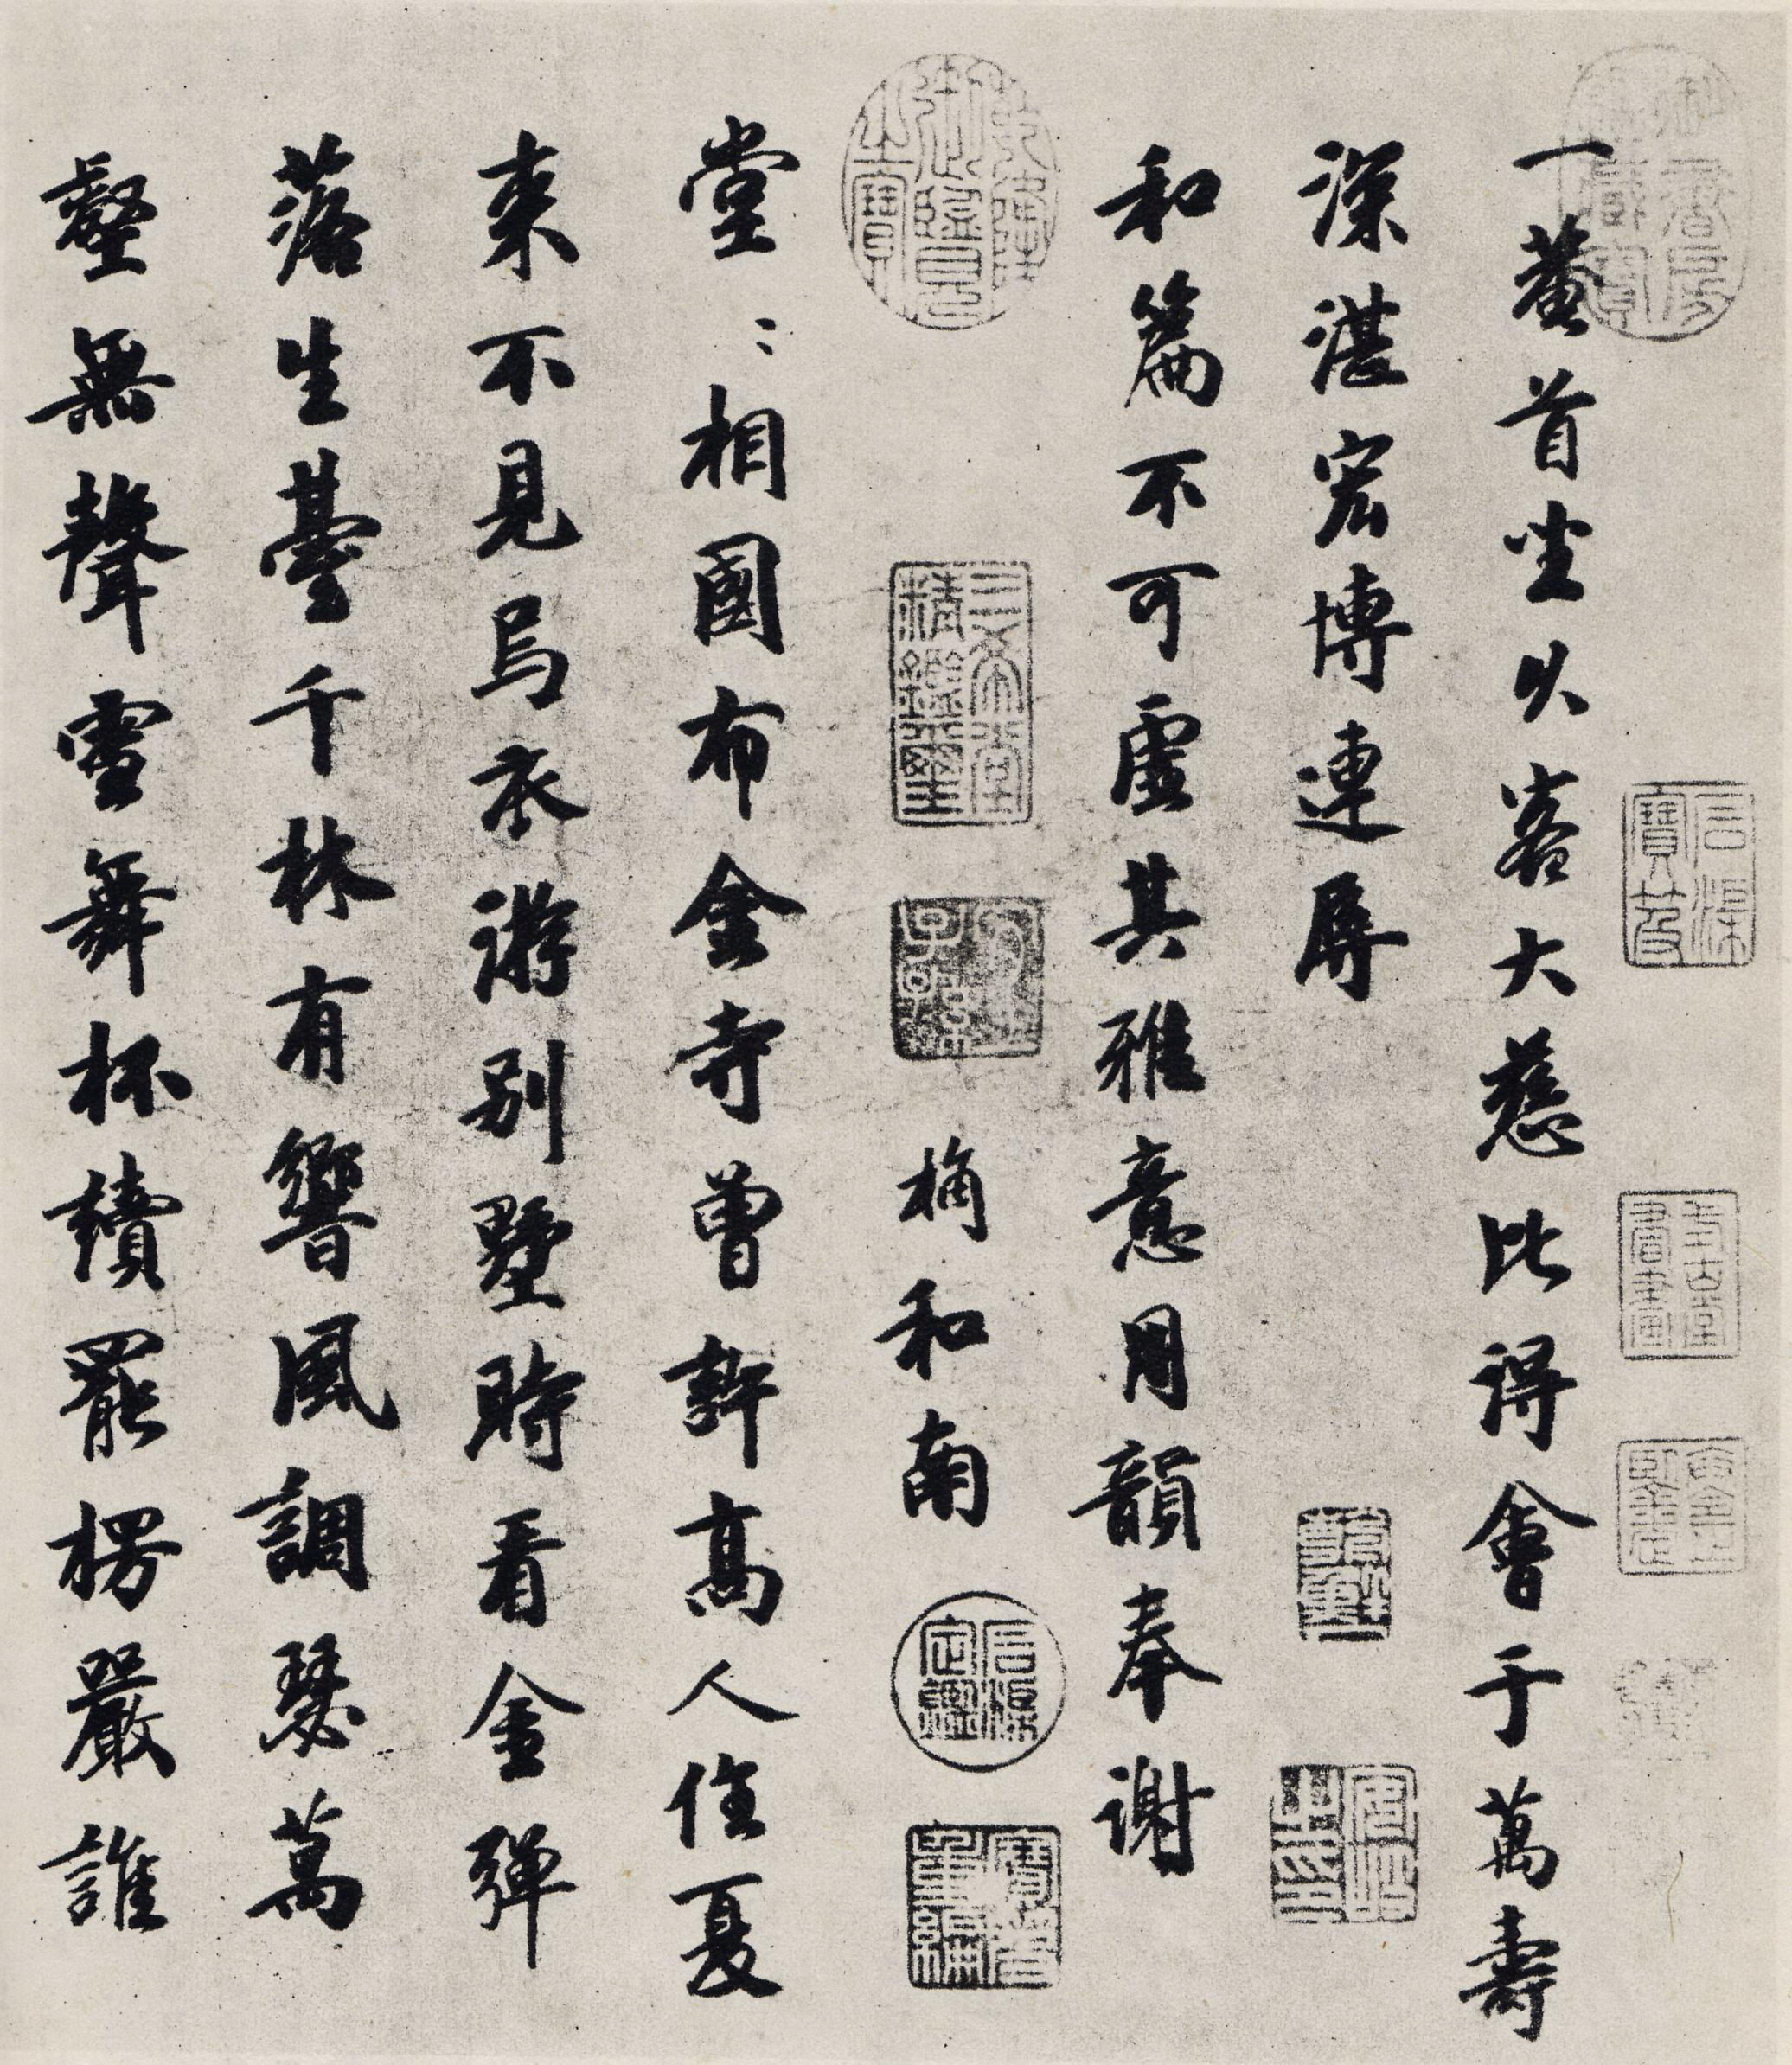 御書房鑑藏寶
石渠寶笈
一菴首坐久客大慈比得會于萬壽
深湛宏博連辱
和篇不可虛其雅意用韻奉謝
乾隆御覽之寶
三希堂精鑑璽
宜子孫
桷和南
石渠定鑑
寶笈重編
堂〻相國布金寺曾許高人住夏
來不見烏衣游別墅時看金彈
落生臺千林有響風調瑟萬
壑無聲雪舞杯讀罷楞嚴誰